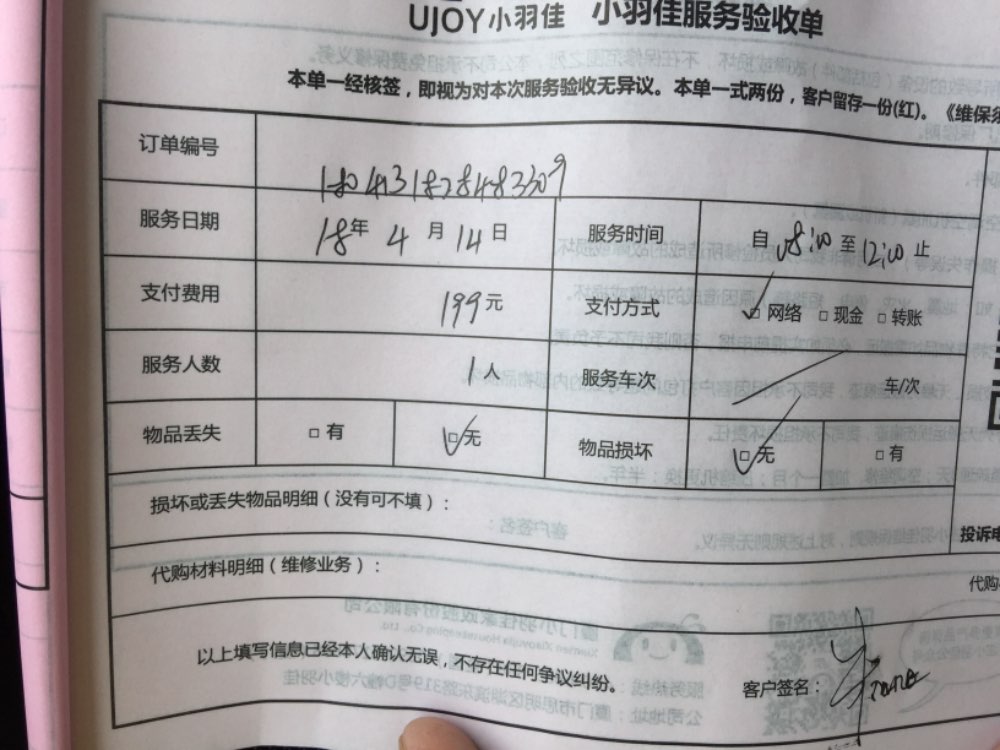 UJOY小羽佳 小羽佳服务验收单
本单一经核签，即视为对本次服务验收无异议。本单一式两份，客户留存一份(红)。《维保须
订单编号 1804131828483309
服务日期 18年 4 月 14 日 服务时间 自 08:00 至 12:00 止
支付费用 199元 支付方式 ☑网络 □现金 □转账
服务人数 1人 服务车次 车/次
物品丢失 □有 ☑无 物品损坏 ☑无 □有
损坏或丢失物品明细（没有可不填）：
投诉电
代购材料明细（维修业务）：
代购
以上填写信息已经本人确认无误，不存在任何争议纠纷。 客户签名：